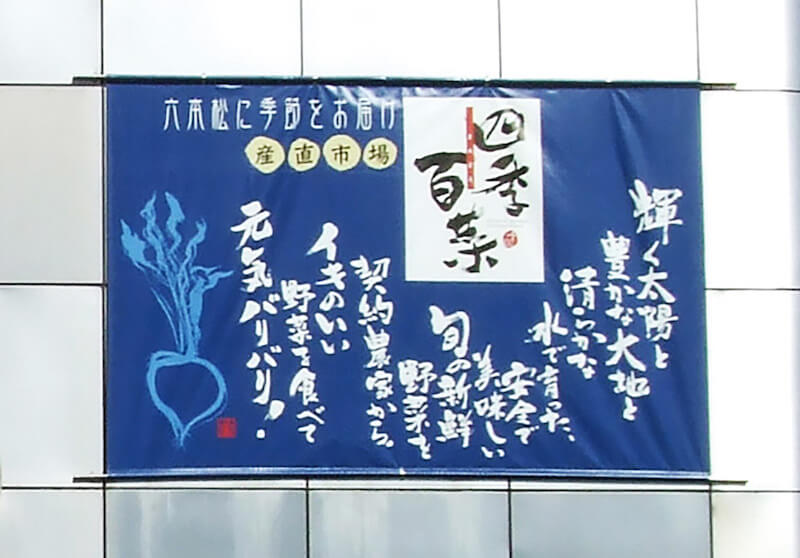 六本松に季節をお届け
産直市場
四季
百菜
輝く太陽と
豊かな大地と
清らかな
水で育った、
安全で
美味しい
旬の新鮮
野菜を
契約農家から。
イキのいい
野菜を食べて
元気バリバリ!